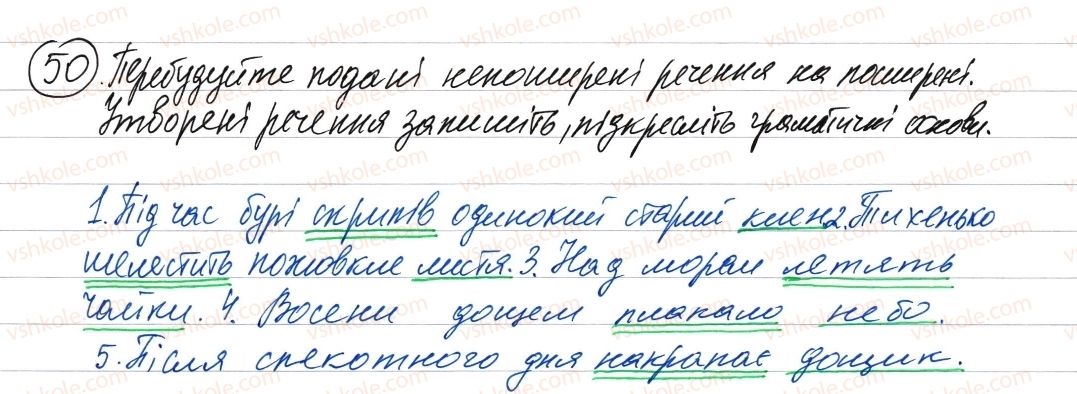 50. Перебудуйте подані непоширені речення на поширені.
Утворені речення запишіть, підкресліть граматичні основи.
1. Під час бурі скрипів одинокий старий клен. 2. Тихенько
шелестить пожовкле листя. 3. Над морем летять
чайки. 4. Восени дощем плакало небо.
5. Після спекотного дня накрапає дощик.